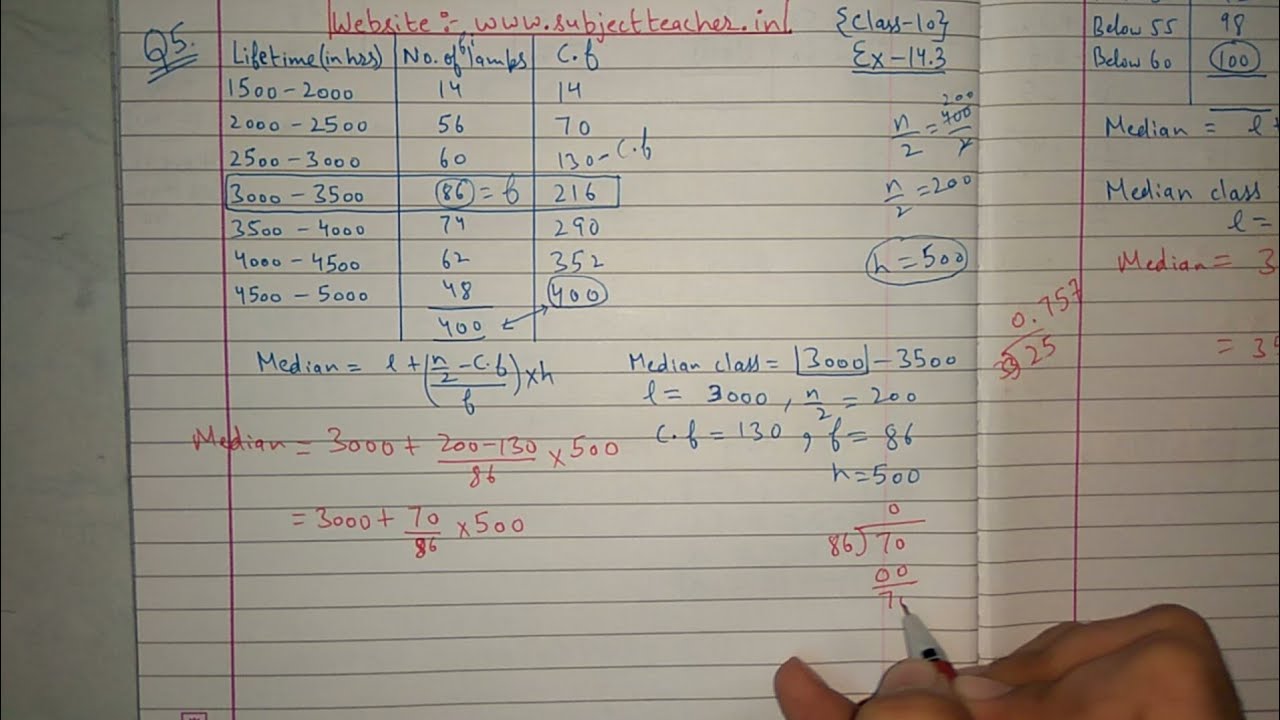 Website :- www.subjectteacher.in
{Class-10}
Q5.
Ex-14.3
Lifetime(in hrs) No. of lamps C.f
1500-2000 14 14
2000-2500 56 70
2500-3000 60 130-C.f
3000-3500 86=f 216
3500-4000 74 290
4000-4500 62 352
4500-5000 48 400
400
n/2 = 400/2 200
n/2 = 200
h=500
Median = l+(n/2-C.f/f)×h
Median class = 3000-3500
l = 3000, n/2 = 200
C.f = 130, f = 86
h=500
Median = 3000+ 200-130/86 ×500
= 3000+ 70/86 ×500
0
86)70
00
7
Below 55 98
Below 60 100
Median = l+
Median class
l =
Median = 3
0.757
25
= 35